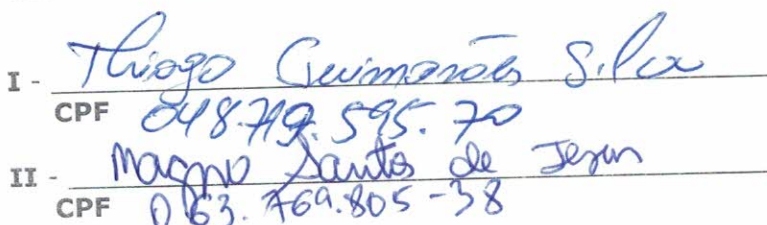 I - Thiago Guimarães Silva
CPF 048.719.595.70
II - Magno Santos de Jesus
CPF 063.769.805-38